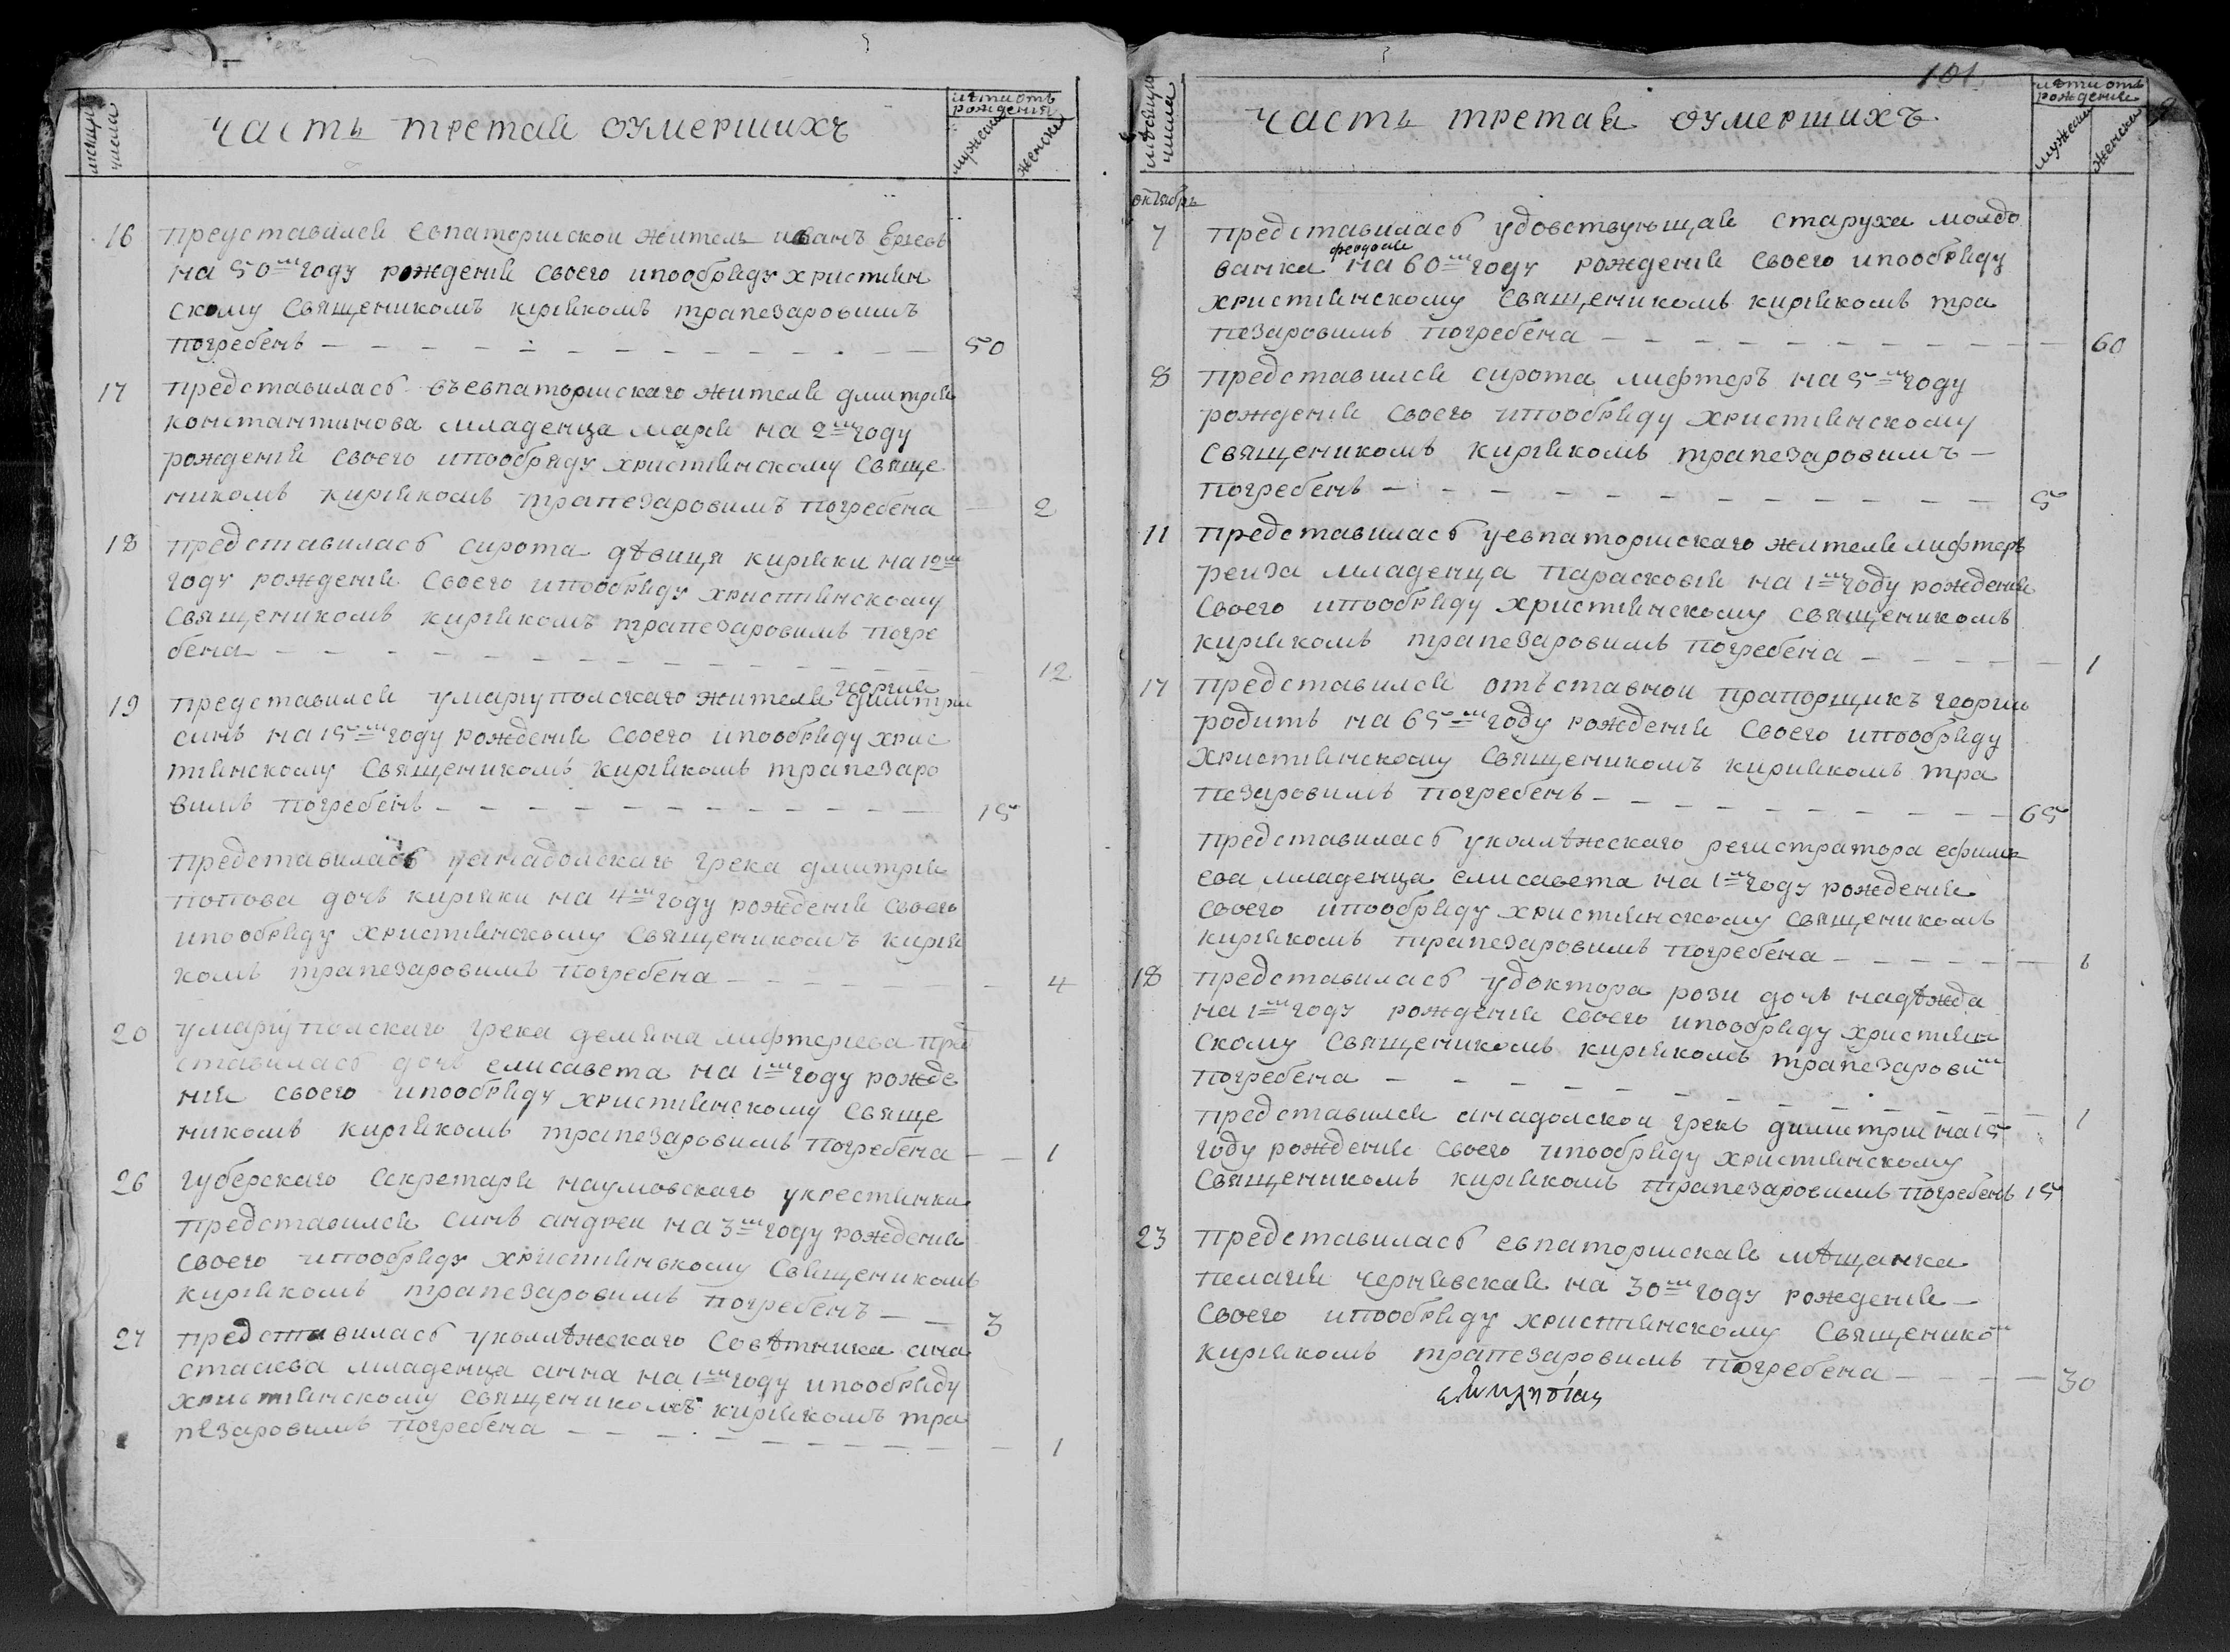 месяцъ
числа
часть третая оумершихъ
лѣти отъ
рождения
мужеска
женска
16 представился евпаторискои житель иванъ
на 50м году рождения своего ипообряду християн
скому священикомъ кириякомъ трапезаровимъ
погребенъ 50
17 представиласъ въевпаторискаго жителя дмитрия
константинова младенца мария на 2м году
рождения своего ипообряду християнскому свяще
никомъ кириякомъ трапезаровимъ погребена 2
18 представиласъ сирота дѣвица кирияки на 12м
году рождения своего ипообряду християнскому
священикомъ кириякомъ трапезаровимъ погре
бена 12
19 представился умаріуполскаго жителя георгия дмитрия
синъ на 15м году рождения своего ипообряду хрис
тиянскому священикомъ кириякомъ трапезаро
вимъ погребенъ 15
представиласъ уанадолскаго грека дмитрия
попова дочъ кирияки на 4м году рождения своего
ипообряду християнскому священикомъ кирия
комъ трапезаровимъ погребена 4
20 умаріуполскаго грека демяна лифтериева пред
ставиласъ дочъ елисавета на 1м году рожде
ния своего ипообряду християнскому свяще
никомъ кириякомъ трапезаровимъ погребена 1
26 губерскаго секретаря наумовскаго укрестянки
представился синъ андреи на 3м году рождения
своего ипообряду християнскому священикомъ
кириякомъ трапезаровимъ погребенъ 3
27 представиласъ уколлѣжскаго совѣтника ана
стасева младенца анна на 1м году ипообряду
християнскому священикомъ кириякомъ тра
пезаровимъ погребена 1
101
месяцъ
числа
часть третая оумершихъ
лѣти отъ
рождения
мужеска
женска
октябрь
7 представиласъ удовствующая старуха молдо
ванка феодоси на 60м году рождения своего ипообряду
християнскому священикомъ кириякомъ тра
пезаровимъ погребена 60
8 представился сирота лифтеръ на 5м году
рождения своего ипообряду християнскому
священикомъ кириякомъ трапезаровимъ
погребенъ 5
11 представиласъ уевпаторискаго жителя лифтеръ
реиза младенца парасковия на 1м году рождения
своего ипообряду християнскому священикомъ
кириякомъ трапезаровимъ погребена 1
17 представился отѣставнои прапорщикъ георгии
родитъ на 65м году рождения своего ипообряду
християнскому священикомъ кириякомъ тра
пезаровимъ погребенъ 65
представиласъ уколлѣжскаго регистратора ефимъ
ева младенца елисавета на 1м году рождения
своего ипообряду християнскому священикомъ
кириякомъ трапезаровимъ погребена 1
18 представиласъ удоктора рози дочъ надѣжда
на 1м году рождения своего ипообряду християн
скому священикомъ кириякомъ трапезаровим
погребена 1
представился анадолскои грекъ димитрии на 15
году рождения своего ипообряду християнскому
священикомъ кириякомъ трапезаровимъ погребенъ 15
23 представиласъ евпаторискаия мѣщанка
пелагия чернявская на 30м году рождения
своего ипообряду християнскому священиком
кириякомъ трапезаровимъ погребена 30